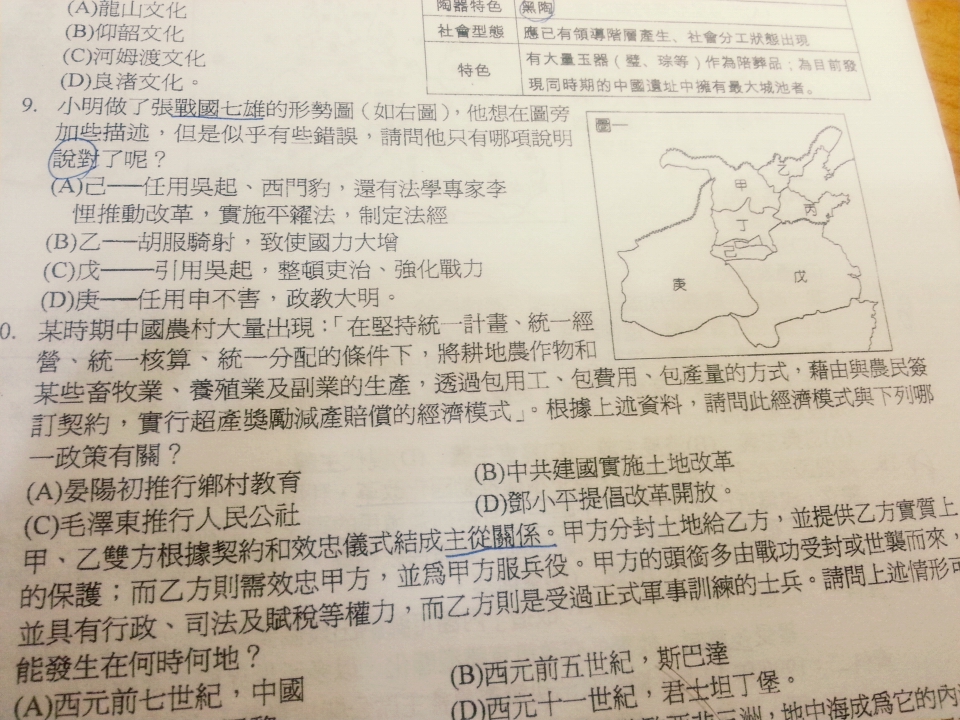 (A)龍山文化
(B)仰韶文化
(C)河姆渡文化
(D)良渚文化。
陶器特色 黑陶
社會型態 應已有領導階層產生、社會分工狀態出現
特色 有大量玉器(璧、琮等)作為陪葬品;為目前發
現同時期的中國遺址中擁有最大城池者。
9. 小明做了張戰國七雄的形勢圖(如右圖),他想在圖旁
加些描述,但是似乎有些錯誤,請問他只有哪項說明
說對了呢?
(A)己──任用吳起、西門豹,還有法學專家李
悝推動改革,實施平糴法,制定法經
(B)乙──胡服騎射,致使國力大增
(C)戊──引用吳起,整頓吏治、強化戰力
(D)庚──任用申不害,政教大明。
圖一
甲
乙
丙
丁
己
庚
戊
0. 某時期中國農村大量出現:「在堅持統一計畫、統一經
營、統一核算、統一分配的條件下,將耕地農作物和
某些畜牧業、養殖業及副業的生產,透過包用工、包費用、包產量的方式,藉由與農民簽
訂契約,實行超產獎勵減產賠償的經濟模式」。根據上述資料,請問此經濟模式與下列哪
一政策有關?
(A)晏陽初推行鄉村教育
(B)中共建國實施土地改革
(C)毛澤東推行人民公社
(D)鄧小平提倡改革開放。
甲、乙雙方根據契約和效忠儀式結成主從關係。甲方分封土地給乙方,並提供乙方實質上
的保護;而乙方則需效忠甲方,並為甲方服兵役。甲方的頭銜多由戰功受封或世襲而來,
並具有行政、司法及賦稅等權力,而乙方則是受過正式軍事訓練的士兵。請問上述情形可
能發生在何時何地?
(A)西元前七世紀,中國
(B)西元前五世紀,斯巴達
(D)西元十一世紀,君士坦丁堡。
地中海成為它的內